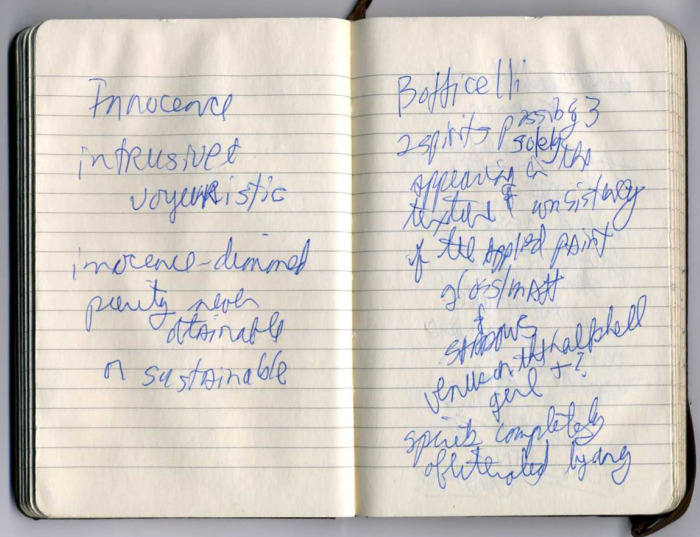 Innocence
intrusive &
voyueristic
innocence-dimmed
purity never
attainable
or sustainable
Botticelli
2 spirits possibly 3
solely
appearing in the
texture & consistency
of the applied paint
gloss/matt
&
shadows
venus on the half shell
girl + ?
spirits completely
obliterated by